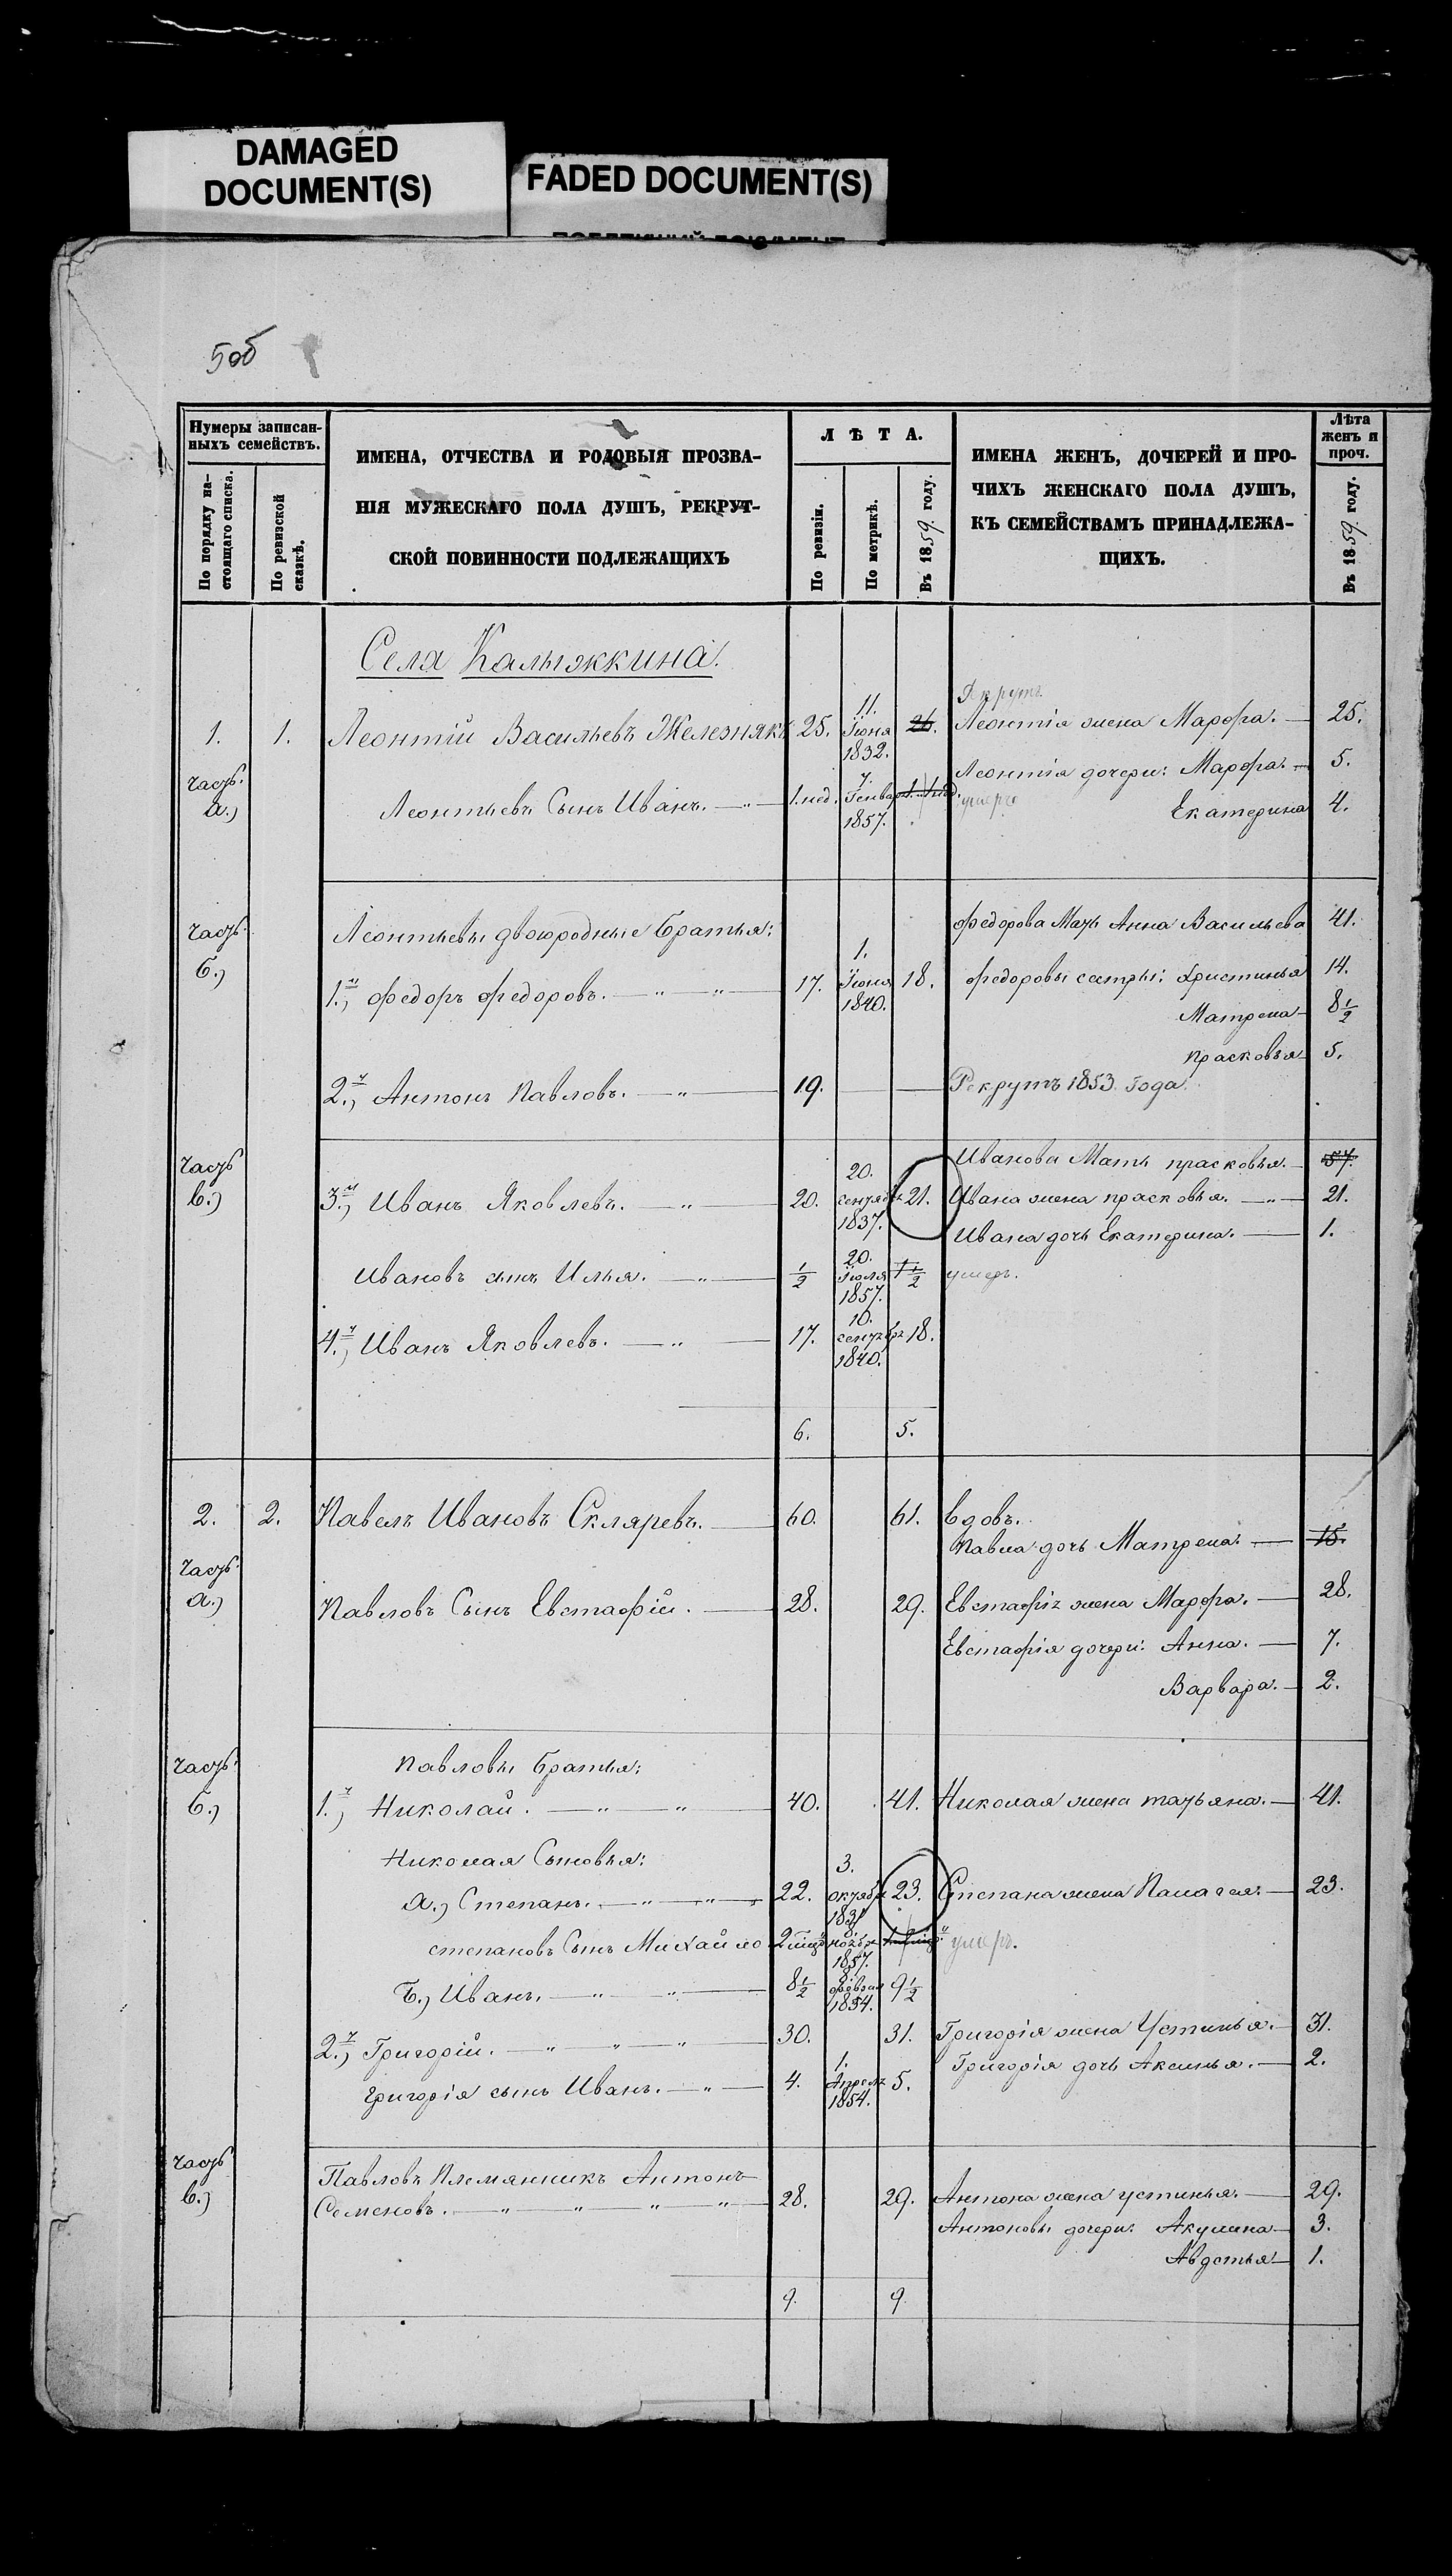 DAMAGED
DOCUMENT(S)
FADED DOCUMENT(S)
5об
Нумеры записан-
ныхъ семействъ.
По порядку на-
стоящаго списка.
По ревизской
сказкѣ.
ИМЕНА, ОТЧЕСТВА И РОДОВЫЯ ПРОЗВА-
НІЯ МУЖЕСКАГО ПОЛА ДУШЪ, РЕКРУТ-
СКОЙ ПОВИННОСТИ ПОДЛЕЖАЩИХЪ
ЛѢТА.
По ревизіи.
По метрикѣ.
Въ 1859 году.
ИМЕНА ЖЕНЪ, ДОЧЕРЕЙ И ПРО-
ЧИХЪ ЖЕНСКАГО ПОЛА ДУШЪ,
КЪ СЕМЕЙСТВАМЪ ПРИНАДЛЕЖА-
ЩИХЪ.
Лѣта
женъ и
проч.
Въ 1859 году.
Села
1. 1. Леонтій Васильевъ Железнякъ 25. 11. Іюня 1832. 26. Леонтія жена Марфа. — 25.
часть а.)
Леонтія дочери: Марфа. — 5.
Леонтьевъ Сынъ Иванъ. — 1. нед. 7. Генвар 1857. умеръ Екатерина 4.
часть б.)
Леонтьевы двоюродные братья:
Федорова Мать Анна Васильева 41.
1.й, Федоръ Федоровъ. — " — " — 17. 1. Іюня 1840. 18. Федоровы сестры: Христинья 14.
Матрена — 8 1/2
Прасковья — 5.
2.й, Антонъ Павловъ. — " — 19. — — Рекрутъ 1853. года.
часть в.)
Иванова Мать Прасковья. — 57.
3.й, Иванъ Яковлевъ. — " — 20. 20. сентября 1837. 21. Ивана жена Прасковья. — " — 21.
Ивана дочь Екатерина. — 1.
Ивановъ сынъ Илья. — " — 1/2 20. Іюля 1857. 1 1/2 умеръ.
4.й, Иванъ Яковлевъ. — " — 17. 10. сентября 1840. 18.
6. 5.
2. 2. Павелъ Ивановъ Скляревъ. — 60. 61. Вдовъ.
Павла дочь Матрена. — 15.
часть а.)
Павловъ Сынъ Евстафій. — 28. 29. Евстафія жена Марфа. — 28.
Евстафія дочери: Анна. — 7.
Варвара. — 2.
часть б.)
Павловы братья:
1.й, Николай. — " — " — 40. 41. Николая жена Татьяна. — 41.
Николая Сыновья:
а.) Степанъ. — " — " — 22. 3. октября 23. Степана жена Палагея. — 23.
степановъ Сынъ Михайло 1857. умеръ.
Б.) Иванъ. — " — " — 8 1/2 9 1/2
2.й, Григорій. — " — " — " — 30. 31. Григорія жена Устинья. — 31.
Григорія дочь Аксинья. — 2.
Григорія сынъ Иванъ. — " — 4. 1. Апреля 1854. 5.
часть в.)
Павловъ Племянникъ Антонъ
Семеновъ. — " — " — " — " — 28. 29. Антона жена Устинья. — 29.
Антоновы дочери: Акулина — 3.
Авдотья — 1.
9. 9.